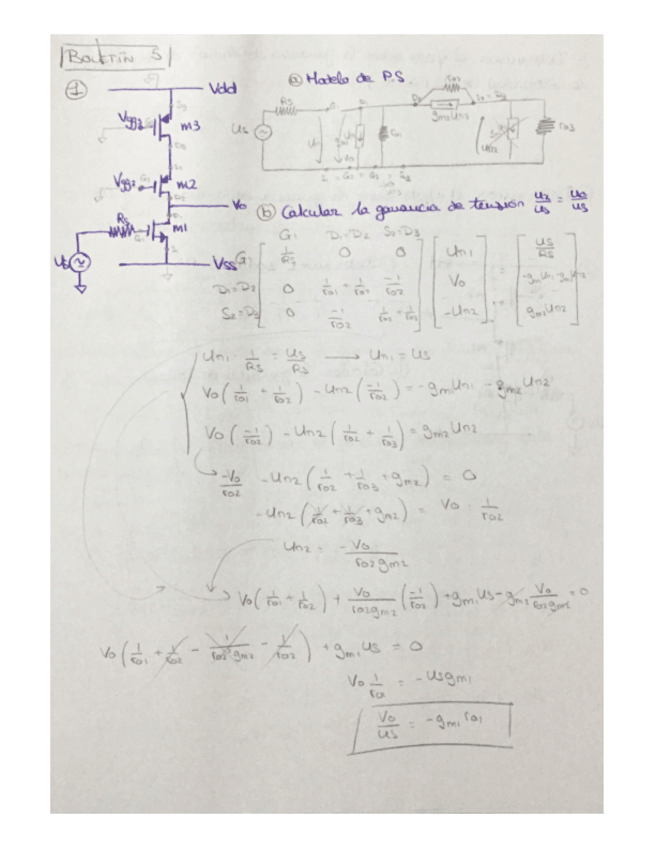 BOLETÍN 5
① Vdd
ⓐ Modelo de P.S.
Vgg3 m3
Vgg2 m2
Vo
Rs G1 m1
Vss
Rs ro2 gm2 Un2 ro3
Us
ⓑ Calcular la ganancia de tensión u2/us = uo/us
G1 D1=D2 S2=D3
G1 [ 1/Rs 0 0 ] [ Un1 ] = [ Us/Rs ]
D1=D2 [ 0 1/ro1 + 1/ro2 -1/ro2 ] [ Vo ] [ -gm1Un1 -gm2Un2 ]
S2=D3 [ 0 -1/ro2 1/ro2 + 1/ro3 ] [ -Un2 ] = [ gm2Un2 ]
Un1 · 1/Rs = Us/Rs → Un1 = Us
Vo ( 1/ro1 + 1/ro2 ) - Un2 ( -1/ro2 ) = -gm1Un1 - gm2Un2
Vo ( -1/ro2 ) - Un2 ( 1/ro2 + 1/ro3 ) = gm2Un2
-Vo/ro2 - Un2 ( 1/ro2 + 1/ro3 + gm2 ) = 0
- Un2 ( 1/ro2 + 1/ro3 + gm2 ) = Vo · 1/ro2
Un2 = -Vo/ro2gm2
Vo ( 1/ro1 + 1/ro2 ) + Vo/ro2gm2 ( -1/ro2 ) + gm1Us - gm2 Vo/ro2gm2 = 0
Vo ( 1/ro1 + 1/ro2 - 1/ro2²gm2 - 1/ro2 ) + gm1Us = 0
Vo 1/ro1 = -Usgm1
Vo/Us = -gm1 ro1